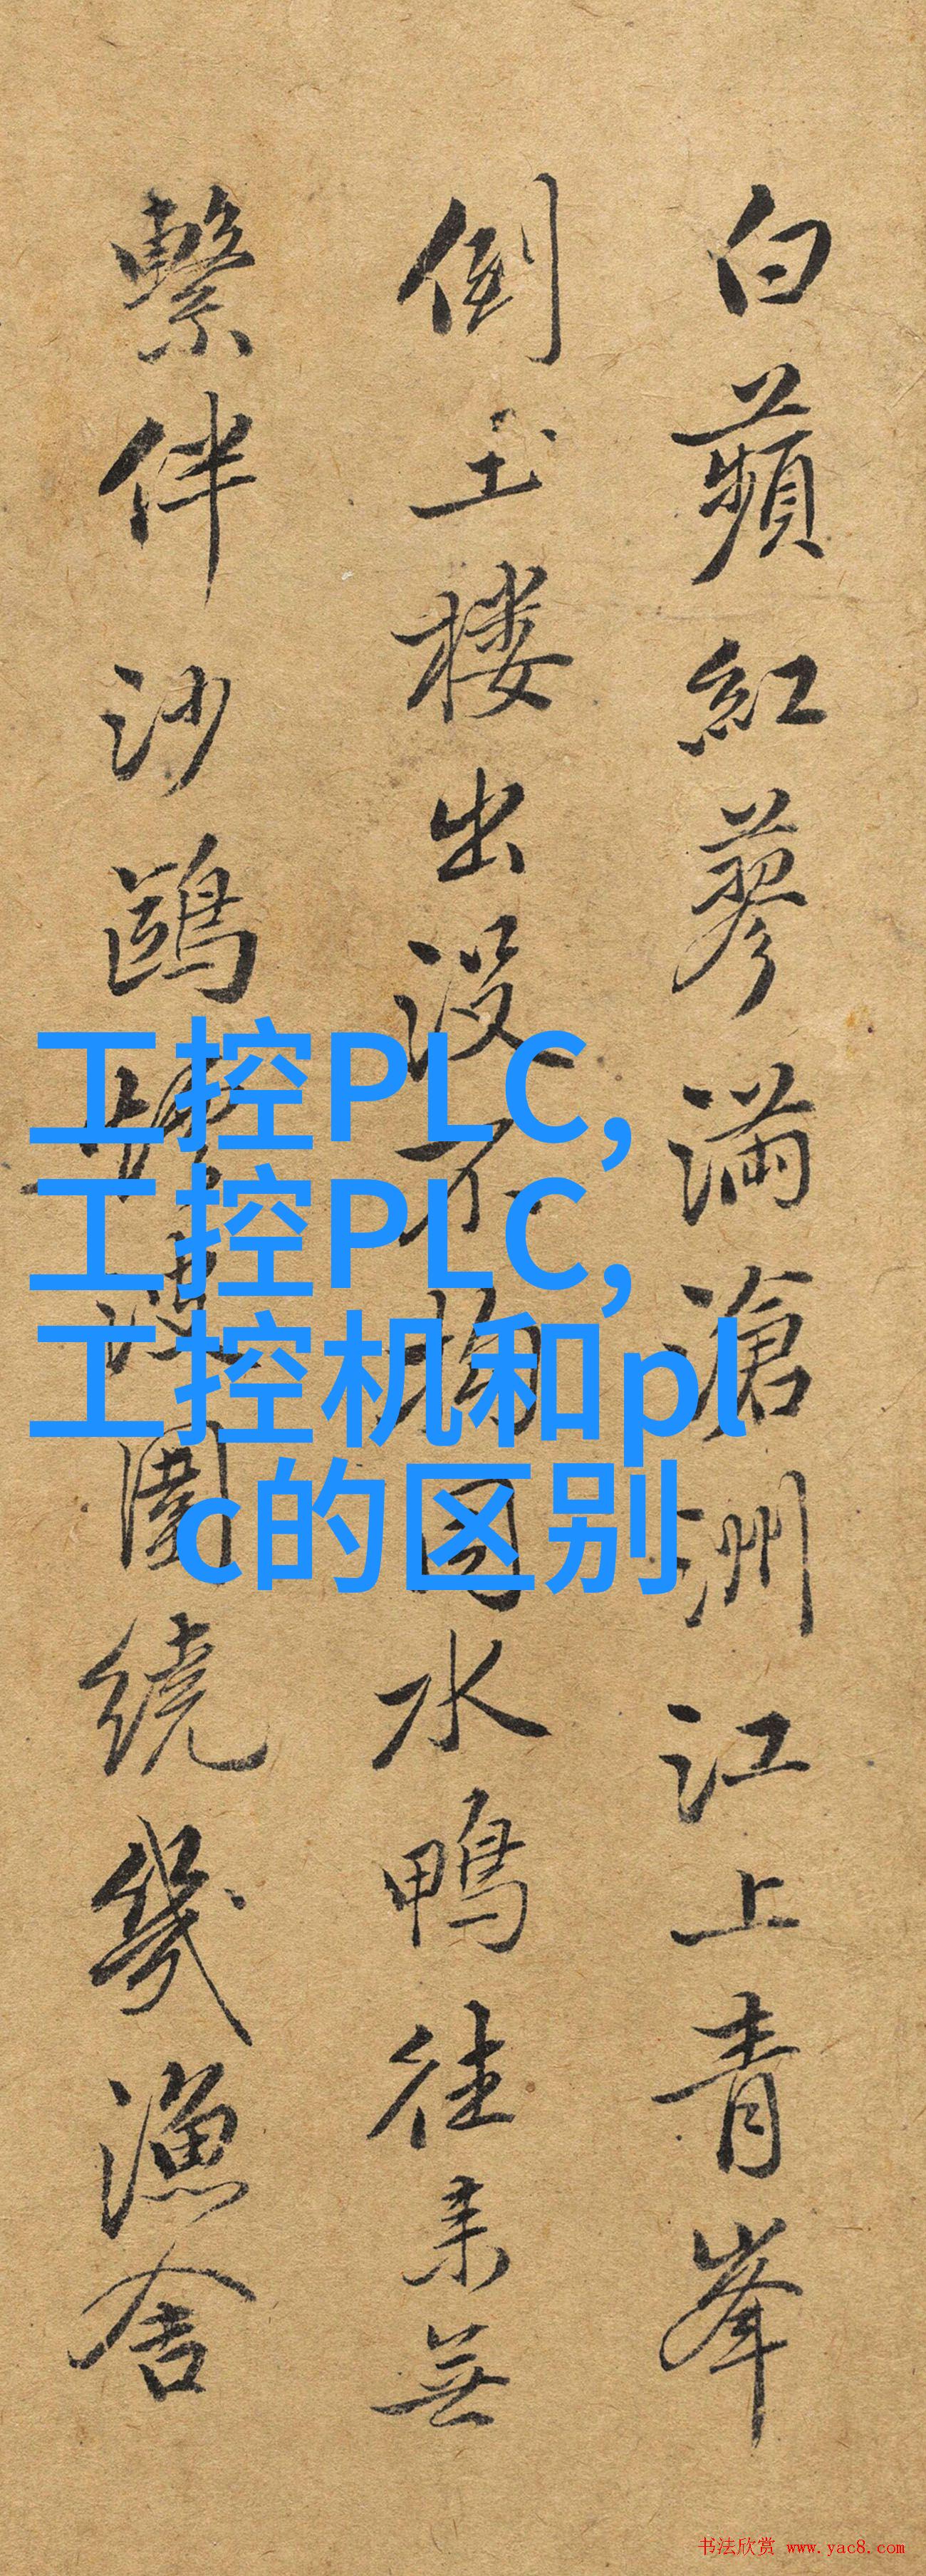 白蘋紅蓼滿滄洲江上青峯
倒玉楼出没不拘水鴨往来無
繫伴沙鷗圍繞幾漁舍
工控PLC,
工控PLC,
工控机和pl
c的区别
书法欣赏 www.yac8.com